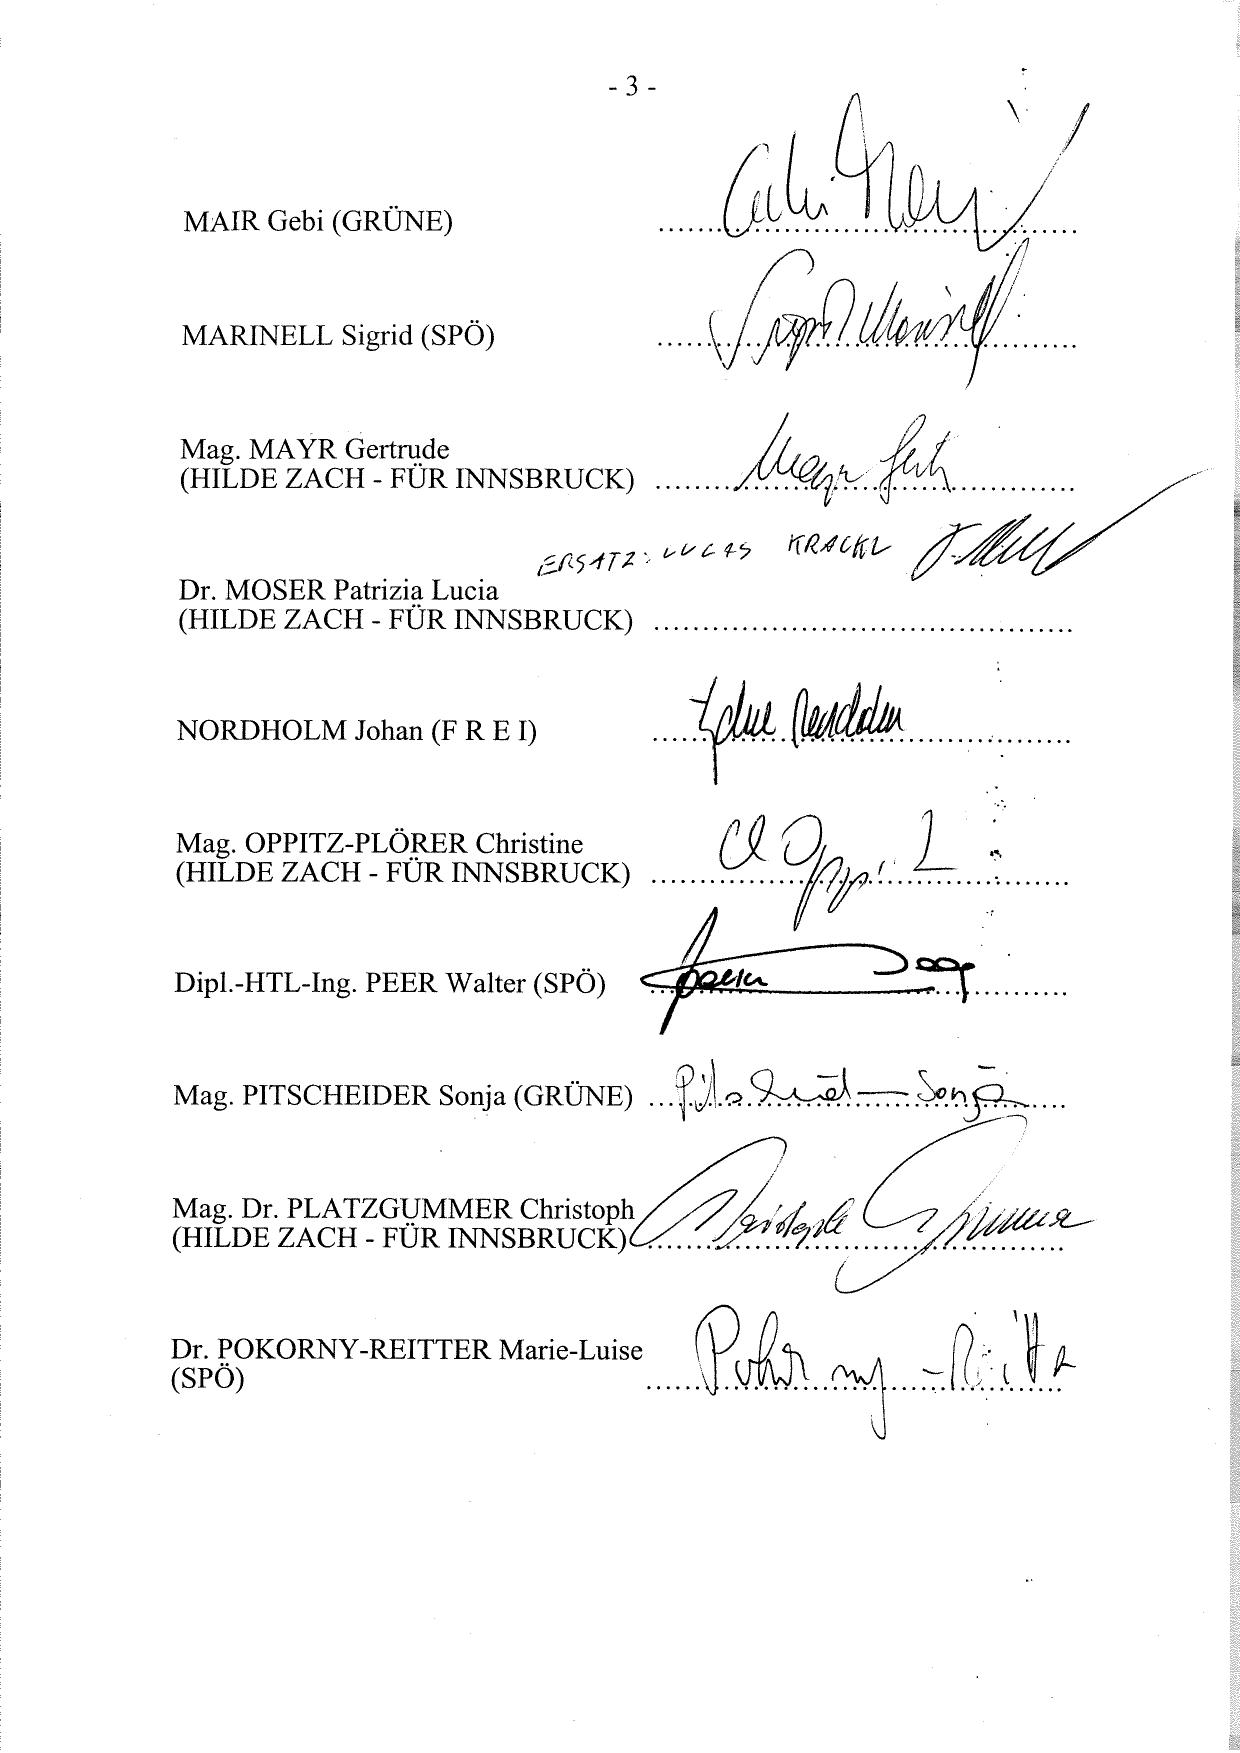 - 3 -
MAIR Gebi (GRÜNE)
MARINELL Sigrid (SPÖ)
Mag. MAYR Gertrude
(HILDE ZACH - FÜR INNSBRUCK) Mayr
ERSATZ: LUCAS KRACKL
Dr. MOSER Patrizia Lucia
(HILDE ZACH - FÜR INNSBRUCK)
NORDHOLM Johan (F R E I)
Mag. OPPITZ-PLÖRER Christine
(HILDE ZACH - FÜR INNSBRUCK)
Dipl.-HTL-Ing. PEER Walter (SPÖ)
Mag. PITSCHEIDER Sonja (GRÜNE) Sonja
Mag. Dr. PLATZGUMMER Christoph
(HILDE ZACH - FÜR INNSBRUCK)
Dr. POKORNY-REITTER Marie-Luise
(SPÖ) Pokorny-Reitter